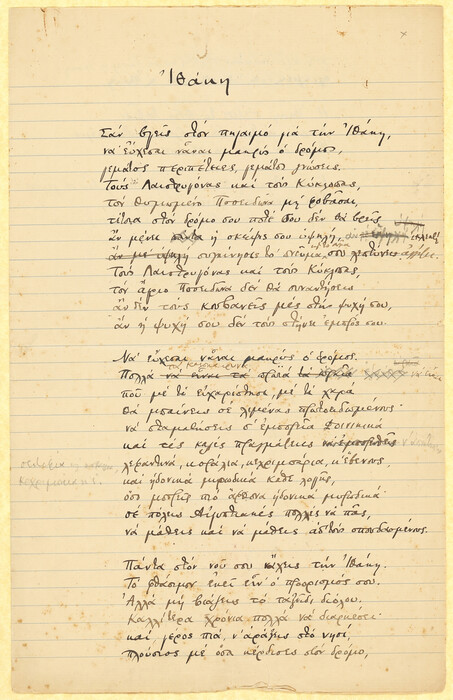 Ἰθάκη
Σὰν βγεῖς στὸν πηγαιμὸ γιὰ τὴν Ἰθάκη,
νὰ εὔχεσαι νἆναι μακρὺς ὁ δρόμος,
γεμάτος περιπέτειες, γεμάτος γνώσεις.
Τοὺς Λαιστρυγόνας καὶ τοὺς Κύκλωπας,
τὸν θυμωμένο Ποσειδῶνα μὴ φοβᾶσαι,
τέτοια στὸν δρόμο σου ποτέ σου δὲν θὰ βρεῖς
ἂν μένει ἡ σκέψις σου ὑψηλή, ἂν ἐκλεκτὴ
συγκίνησις τὸ πνεῦμα σου ἀγγίζει.
Τοὺς Λαιστρυγόνας καὶ τοὺς Κύκλωπας,
τὸν ἄγριο Ποσειδῶνα δὲν θὰ συναντήσεις
ἂν δὲν τοὺς κουβανεῖς μὲς στὴν ψυχή σου,
ἂν ἡ ψυχή σου δὲν τοὺς στήνει ἐμπρός σου.
Νὰ εὔχεσαι νἆναι μακρὺς ὁ δρόμος.
Πολλὰ τὰ καλοκαιρινὰ πρωϊὰ νὰ εἶναι
ποῦ μὲ τί εὐχαρίστησι, μὲ τί χαρὰ
θὰ μπαίνεις σὲ λιμένας πρωτοειδωμένους·
νὰ σταματήσεις σ' ἐμπορεῖα Φοινικικὰ
καὶ τὲς καλὲς πραγμάτειες
σεντέφια κ
λεβαντινά, κοράλλια, κεχριμπάρια, κ' ἔβενους,
καὶ ἡδονικὰ μυρωδικὰ κάθε λογῆς,
ὅσο μπορεῖς πιὸ ἄφθονα ἡδονικὰ μυρωδικά·
σὲ πόλεις Αἰγυπτιακὲς πολλὲς νὰ πᾶς,
νὰ μάθεις καὶ νὰ μάθεις ἀπ' τοὺς σπουδασμένους.
Πάντα στὸν νοῦ σου νἄχεις τὴν Ἰθάκη.
Τὸ φθάσιμον ἐκεῖ εἶν' ὁ προορισμός σου.
Ἀλλὰ μὴ βιάζεις τὸ ταξεῖδι διόλου.
Καλλίτερα χρόνια πολλὰ νὰ διαρκέσει·
καὶ γέρος πιὰ ν' ἀράξεις στὸ νησί,
πλούσιος μὲ ὅσα κέρδισες στὸν δρόμο,